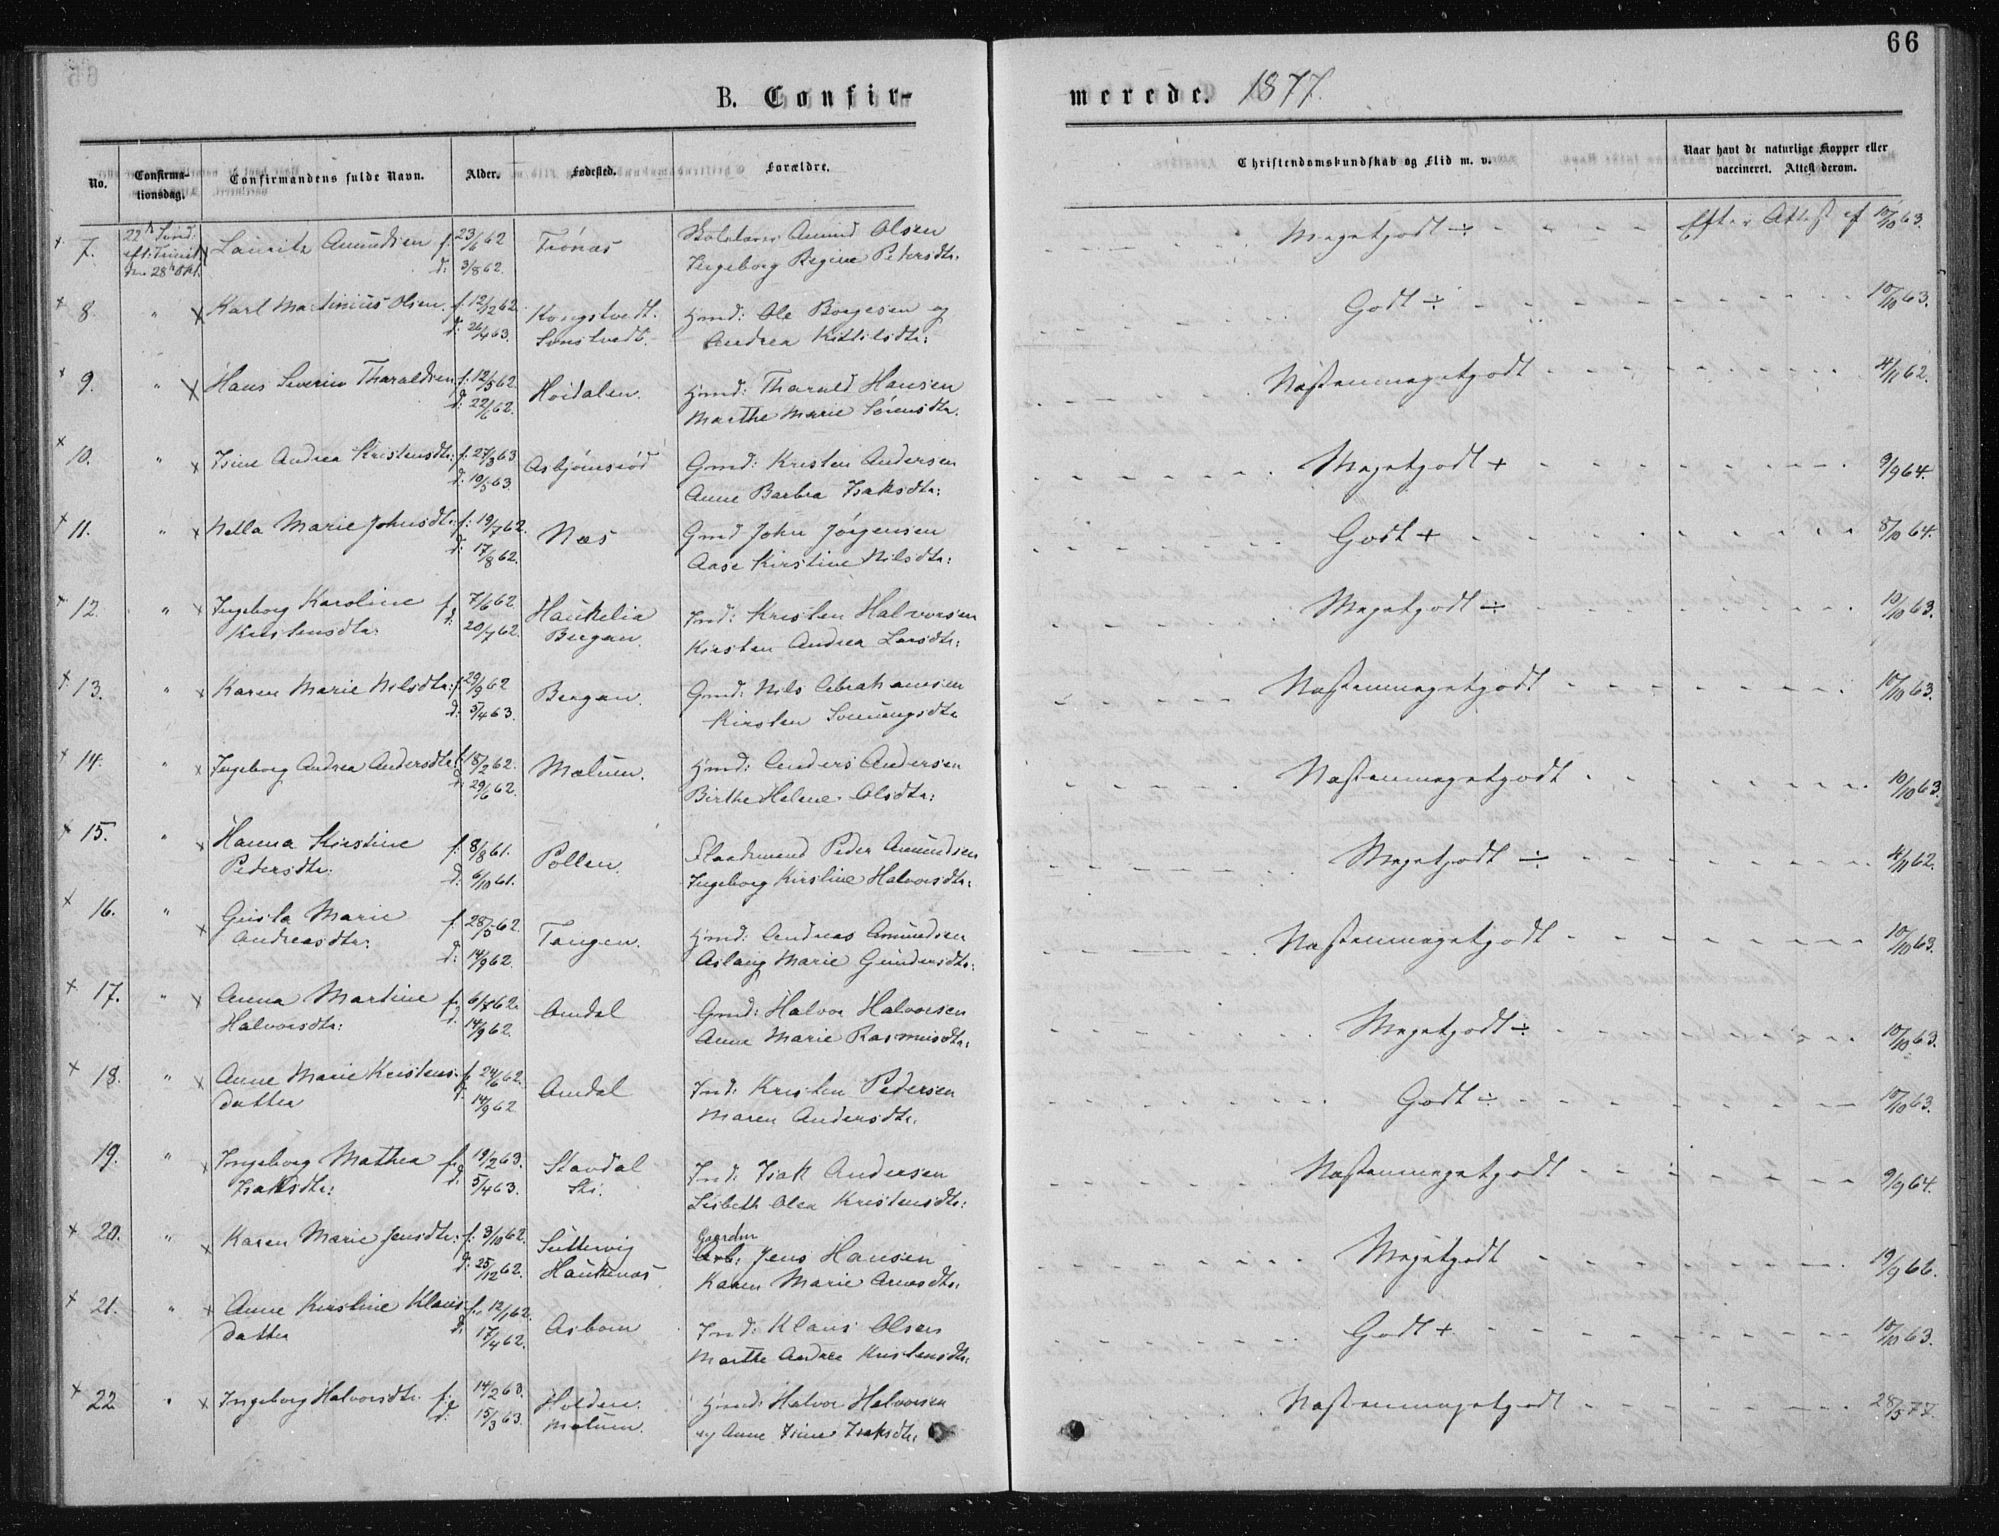 66
B. Confir-
merede. 1877.
No.
Confirma-
tionsdag.
Confirmandens fulde Navn.
Alder.
Fødested.
Forældre.
Christendomskundskab og Flid m. v.
Naar havt de naturlige Kopper eller
vaccineret. Attest derom.
7. 22de Sönd. Lauritz Amundsen f. 23/6 62 Trönæs Skolelærer Amund Olsen Megetgodt ÷ Efter Attest af 10/10 63.
eft. Trinit. d. 3/8 62. Ingeborg Regine Pedersdtr.
den 28de Okt.
8. " Karl Martinius Olsen. f. 12/12 62. Kongstvedt. Hmd: Ole Borgesen og Godt ÷ 10/10 63.
d: 26/4 63. Sonstvedt. Andrea Kittilsdtr:
9. " Hans Severin Tharaldsen f. 12/5 62. Høidalen. Hmd: Tharald Hansen Næstenmegetgodt 4/11 62.
d: 22/6 62. Marthe Marie Sörensdtr.
10. " Isine Andrea Kristensdtr: f. 27/3 63 Asbjörnsröd Gmd: Kristen Andersen Megetgodt + 9/9 64.
d: 10/5 63. Anne Barbra Isaksdtr:
11. " Nella Marie Johnsdtr. f: 19/7 62. Næs Gmd John Jörgensen Godt + 8/10 64.
d: 17/8 62. Aase Kirstine Nilsdtr:
12. " Ingeborg Karoline f. 7/6 62. Haukelia Ind: Kristen Halvorsen Megetgodt ÷ 10/10 63.
Kristensdtr. d. 20/7 62. Bergan. Kirsten Andrea Larsdtr:
13. " Karen Marie Nilsdtr. f. 29/9 62 Bergan. Gmd: Nils Abrahamsen Næstenmegetgodt 10/10 63.
d: 5/4 63. Kirsten Sonungsdtr
14. " Ingeborg Andrea Andersdtr. f. 18/2 62. Mælum. Hmd: Anders Andersen Næstenmegetgodt 10/10 63.
d. 29/6 62. Birthe Helene Olsdtr:
15. " Hanna Kirstine f. 8/8 61. Pollen. Flaademand Peder Amundsen Megetgodt ÷ 4/11 62.
Pedersdtr. d: 6/10 61. Ingeborg Kirstine Halvorsdtr:
16. " Gusta Marie f. 28/5 62. Tangen. Hmd: Andreas Amundsen Næstenmegetgodt 10/10 63.
Andreasdtr: d: 14/9 62. Aslaug Marie Gundersdtr:
17. " Anna Martine f. 6/7 62. Amdal Gmd: Halvor Halvorsen Megetgodt ÷ 10/10 63.
Halvorsdtr: d. 14/9 62. Anne Marie Rasmusdtr:
18. " Anne Marie Kristens- f. 24/6 62. Amdal Ind: Kristen Pedersen Godt ÷ 10/10 63.
datter d. 14/9 62 Maren Andersdtr.
19. " Ingeborg Mathea f. 19/2 63. Stavdal Ind: Isak Andersen Næstenmegetgodt 9/9 64.
Isaksdtr: d. 5/4 63. Lisbeth Olea Kristensdtr:
20. " Karen Marie Jensdtr: f: 3/10 62. Suttervig Gaardm Jens Hansen Megetgodt 19/9 66.
d: 25/12 62. Haukenæs. Karen Marie Arnesdtr.
21. " Anne Kirstine Klaus- f. 12/1 62. Asbom Ind: Klaus Olsen Godt + 10/10 63.
datter d. 17/4 62. Marthe Andrea Kristensdtr:
22 " Ingeborg Halvorsdtr. f. 14/2 63. Holden. Hmd: Halvor Halvorsen Næstenmegetgodt 28/5 77.
d. 15/3 63. Mælum. og Anne Isine Isaksdtr: